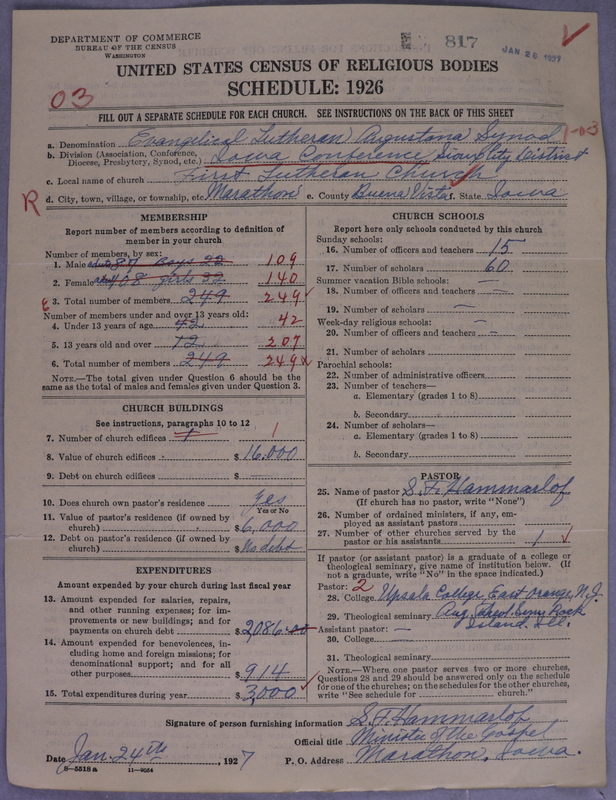 DEPARTMENT OF COMMERCE
BUREAU OF THE CENSUS
WASHINGTON
817
JAN 26 1927
UNITED STATES CENSUS OF RELIGIOUS BODIES
SCHEDULE: 1926
03
FILL OUT A SEPARATE SCHEDULE FOR EACH CHURCH. SEE INSTRUCTIONS ON THE BACK OF THIS SHEET
a. Denomination Evangelical Lutheran Augustana Synod 1-03
b. Division (Association, Conference, Diocese, Presbytery, Synod, etc.) Iowa Conference Sioux City District
c. Local name of church First Lutheran Church
R
d. City, town, village, or township, etc. Marathon e. County Buena Vista f. State Iowa
MEMBERSHIP
Report number of members according to definition of
member in your church
Number of members, by sex:
1. Male adults 87 boys 22 109
2. Female 108 girls 32 140
3. Total number of members 249 249
Number of members under and over 13 years old:
4. Under 13 years of age 42 42
5. 13 years old and over 12 207
6. Total number of members 249 249
NOTE.—The total given under Question 6 should be the
same as the total of males and females given under Question 3.
CHURCH BUILDINGS
See instructions, paragraphs 10 to 12
7. Number of church edifices 1 1
8. Value of church edifices $ 16,000
9. Debt on church edifices $
10. Does church own pastor's residence Yes
Yes or No
11. Value of pastor's residence (if owned by
church) $ 6,000
12. Debt on pastor's residence (if owned by
church) $ No debt
EXPENDITURES
Amount expended by your church during last fiscal year
13. Amount expended for salaries, repairs,
and other running expenses; for im-
provements or new buildings; and for
payments on church debt $ 2086.00
14. Amount expended for benevolences, in-
cluding home and foreign missions; for
denominational support; and for all
other purposes $ 914
15. Total expenditures during year $ 3,000
CHURCH SCHOOLS
Report here only schools conducted by this church
Sunday schools:
16. Number of officers and teachers 15
17. Number of scholars 60
Summer vacation Bible schools: —
18. Number of officers and teachers —
19. Number of scholars —
Week-day religious schools: —
20. Number of officers and teachers —
21. Number of scholars
Parochial schools:
22. Number of administrative officers
23. Number of teachers—
a. Elementary (grades 1 to 8)
b. Secondary
24. Number of scholars—
a. Elementary (grades 1 to 8)
b. Secondary
PASTOR
25. Name of pastor S. F. Hammarlof
(If church has no pastor, write "None")
26. Number of ordained ministers, if any, em-
ployed as assistant pastors
27. Number of other churches served by the
pastor or his assistants 1
If pastor (or assistant pastor) is a graduate of a college or
theological seminary, give name of institution below. (If
not a graduate, write "No" in the space indicated.)
Pastor: 2
28. College Upsala College, East Orange, N. J.
29. Theological seminary Aug. Theol. Semy Rock
Island, Ill.
Assistant pastor: —
30. College
31. Theological seminary
NOTE.—Where one pastor serves two or more churches,
Questions 28 and 29 should be answered only on the schedule
for one of the churches; on the schedules for the other churches,
write "See schedule for church."
Signature of person furnishing information S. F. Hammarlof
Official title Minister of the Gospel
Date Jan. 24th, 1927 P. O. Address Marathon, Iowa.
8—5518 a 11—9054